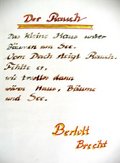 Der Rauch
Das kleine Haus unter
Bäumen am See.
Vom Dach steigt Rauch.
Fehlte er,
wie trostlos dann
wären Haus, Bäume
und See.
Bertolt
Brecht